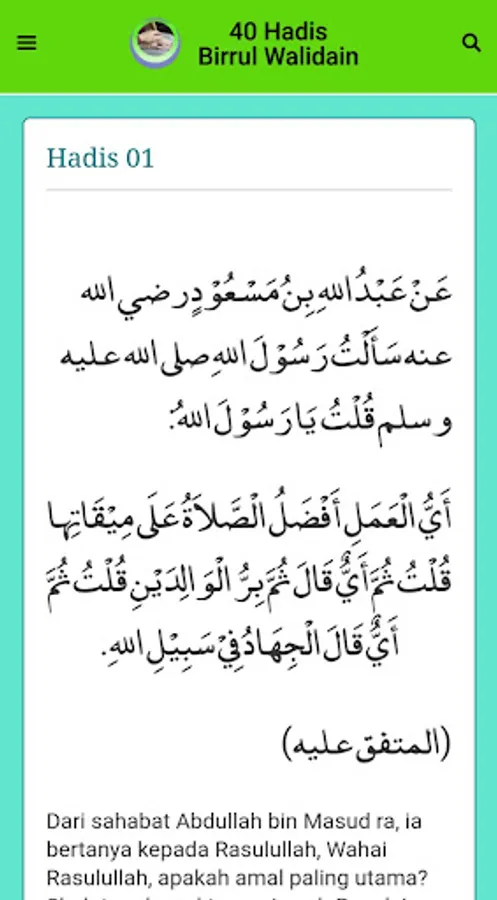 40 Hadis
Birrul Walidain
Hadis 01
عَنْ عَبْدُ اللهِ بِنُ مَسْعُوْدٍ رضي الله
عنه سَأَلْتُ رَسُوْلَ اللهِ صلى الله عليه
وسلم قُلْتُ يَا رَسُوْلَ اللهُ:
أَيُّ الْعَمَلِ أَفْضَلُ الْصَّلاَةُ عَلَى مِيْقَاتِهِا
قُلْتُ ثُمَّ أَيٌّ قَالَ ثُمَّ بِرُّ الْوَالِدَيْنِ قُلْتُ ثُمَّ
أَيٌّ قَالَ الْجِهَادُ فِيْ سَبِيْلِ اللهِ.
(المتفق عليه)
Dari sahabat Abdullah bin Masud ra, ia
bertanya kepada Rasulullah, Wahai
Rasulullah, apakah amal paling utama?